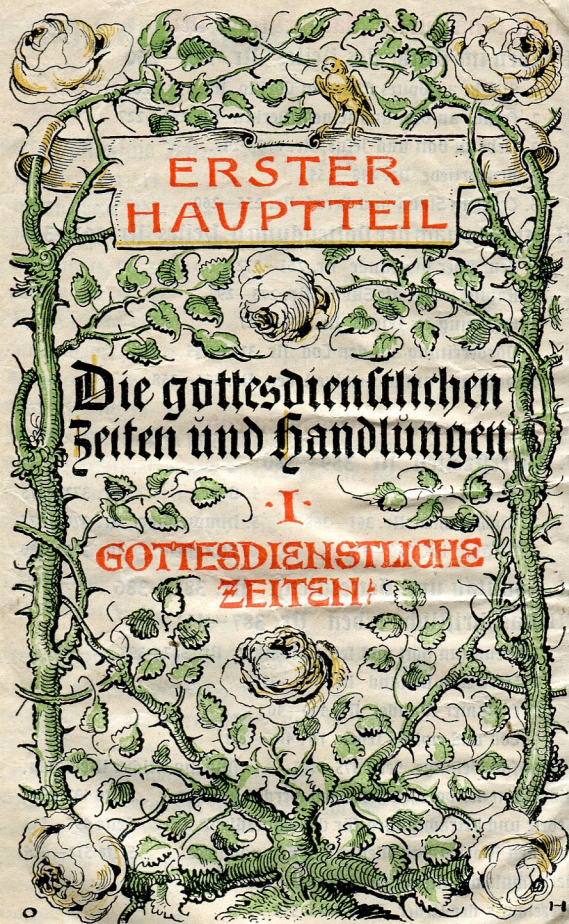 ERSTER
HAUPTTEIL
Die gottesdienſtlichen
Zeiten und Handlungen
·I·
GOTTESDIENSTLICHE
ZEITEN:
O H